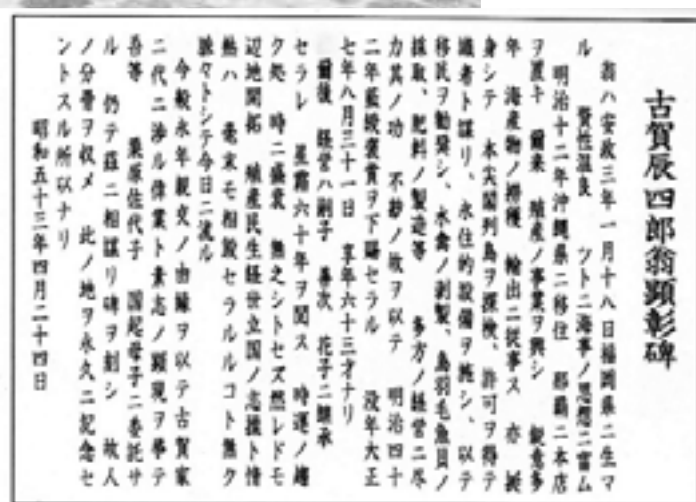 古賀辰四郎翁顕彰碑
翁ハ安政三年一月十八日福岡県ニ生マ
ル 資性温良 ツトニ海事ノ思想ニ富ム
明治十二年沖縄県ニ移住 那覇ニ本店
ヲ置キ 爾来 殖産ノ事業ヲ興シ 鋭意多
年 海産物ノ 輸出ニ従事ス 亦 挺
身シテ 本尖閣列島ヲ探検、許可ヲ得テ
識者ト謀リ、永住的設備ヲ施シ、以テ
移民ヲ勧奨シ、水禽ノ剥製、鳥羽毛魚貝ノ
採取、肥料ノ製造等 多方ノ経営ニ尽
力其ノ功 不尠ノ故ヲ以テ 明治四十
二年藍綬褒賞ヲ下賜セラル 没年大正
七年八月三十一日 享年六十三才ナリ
爾後 経営ハ嗣子 善次 花子ニ継承
セラレ 星霜六十年ヲ閲ス 時運ノ趨
ク処 時ニ盛衰 無之シトセズ然レドモ
辺地開拓 殖産民生経世立国ノ志操ト情
熱ハ 毫末モ相毀セラルルコト無ク
脈々トシテ今日ニ流ル
今般永年親交ノ由縁ヲ以テ古賀家
二代ニ渉ル偉業ト素志ノ顕現ヲ挙テ
吾等 栗原佐代子 国起母子ニ委託サ
ル 仍テ茲ニ相謀リ碑ヲ刻シ 故人
ノ分骨ヲ収メ 此ノ地ヲ永久ニ記念セ
ントスル所以ナリ
昭和五十三年四月二十四日